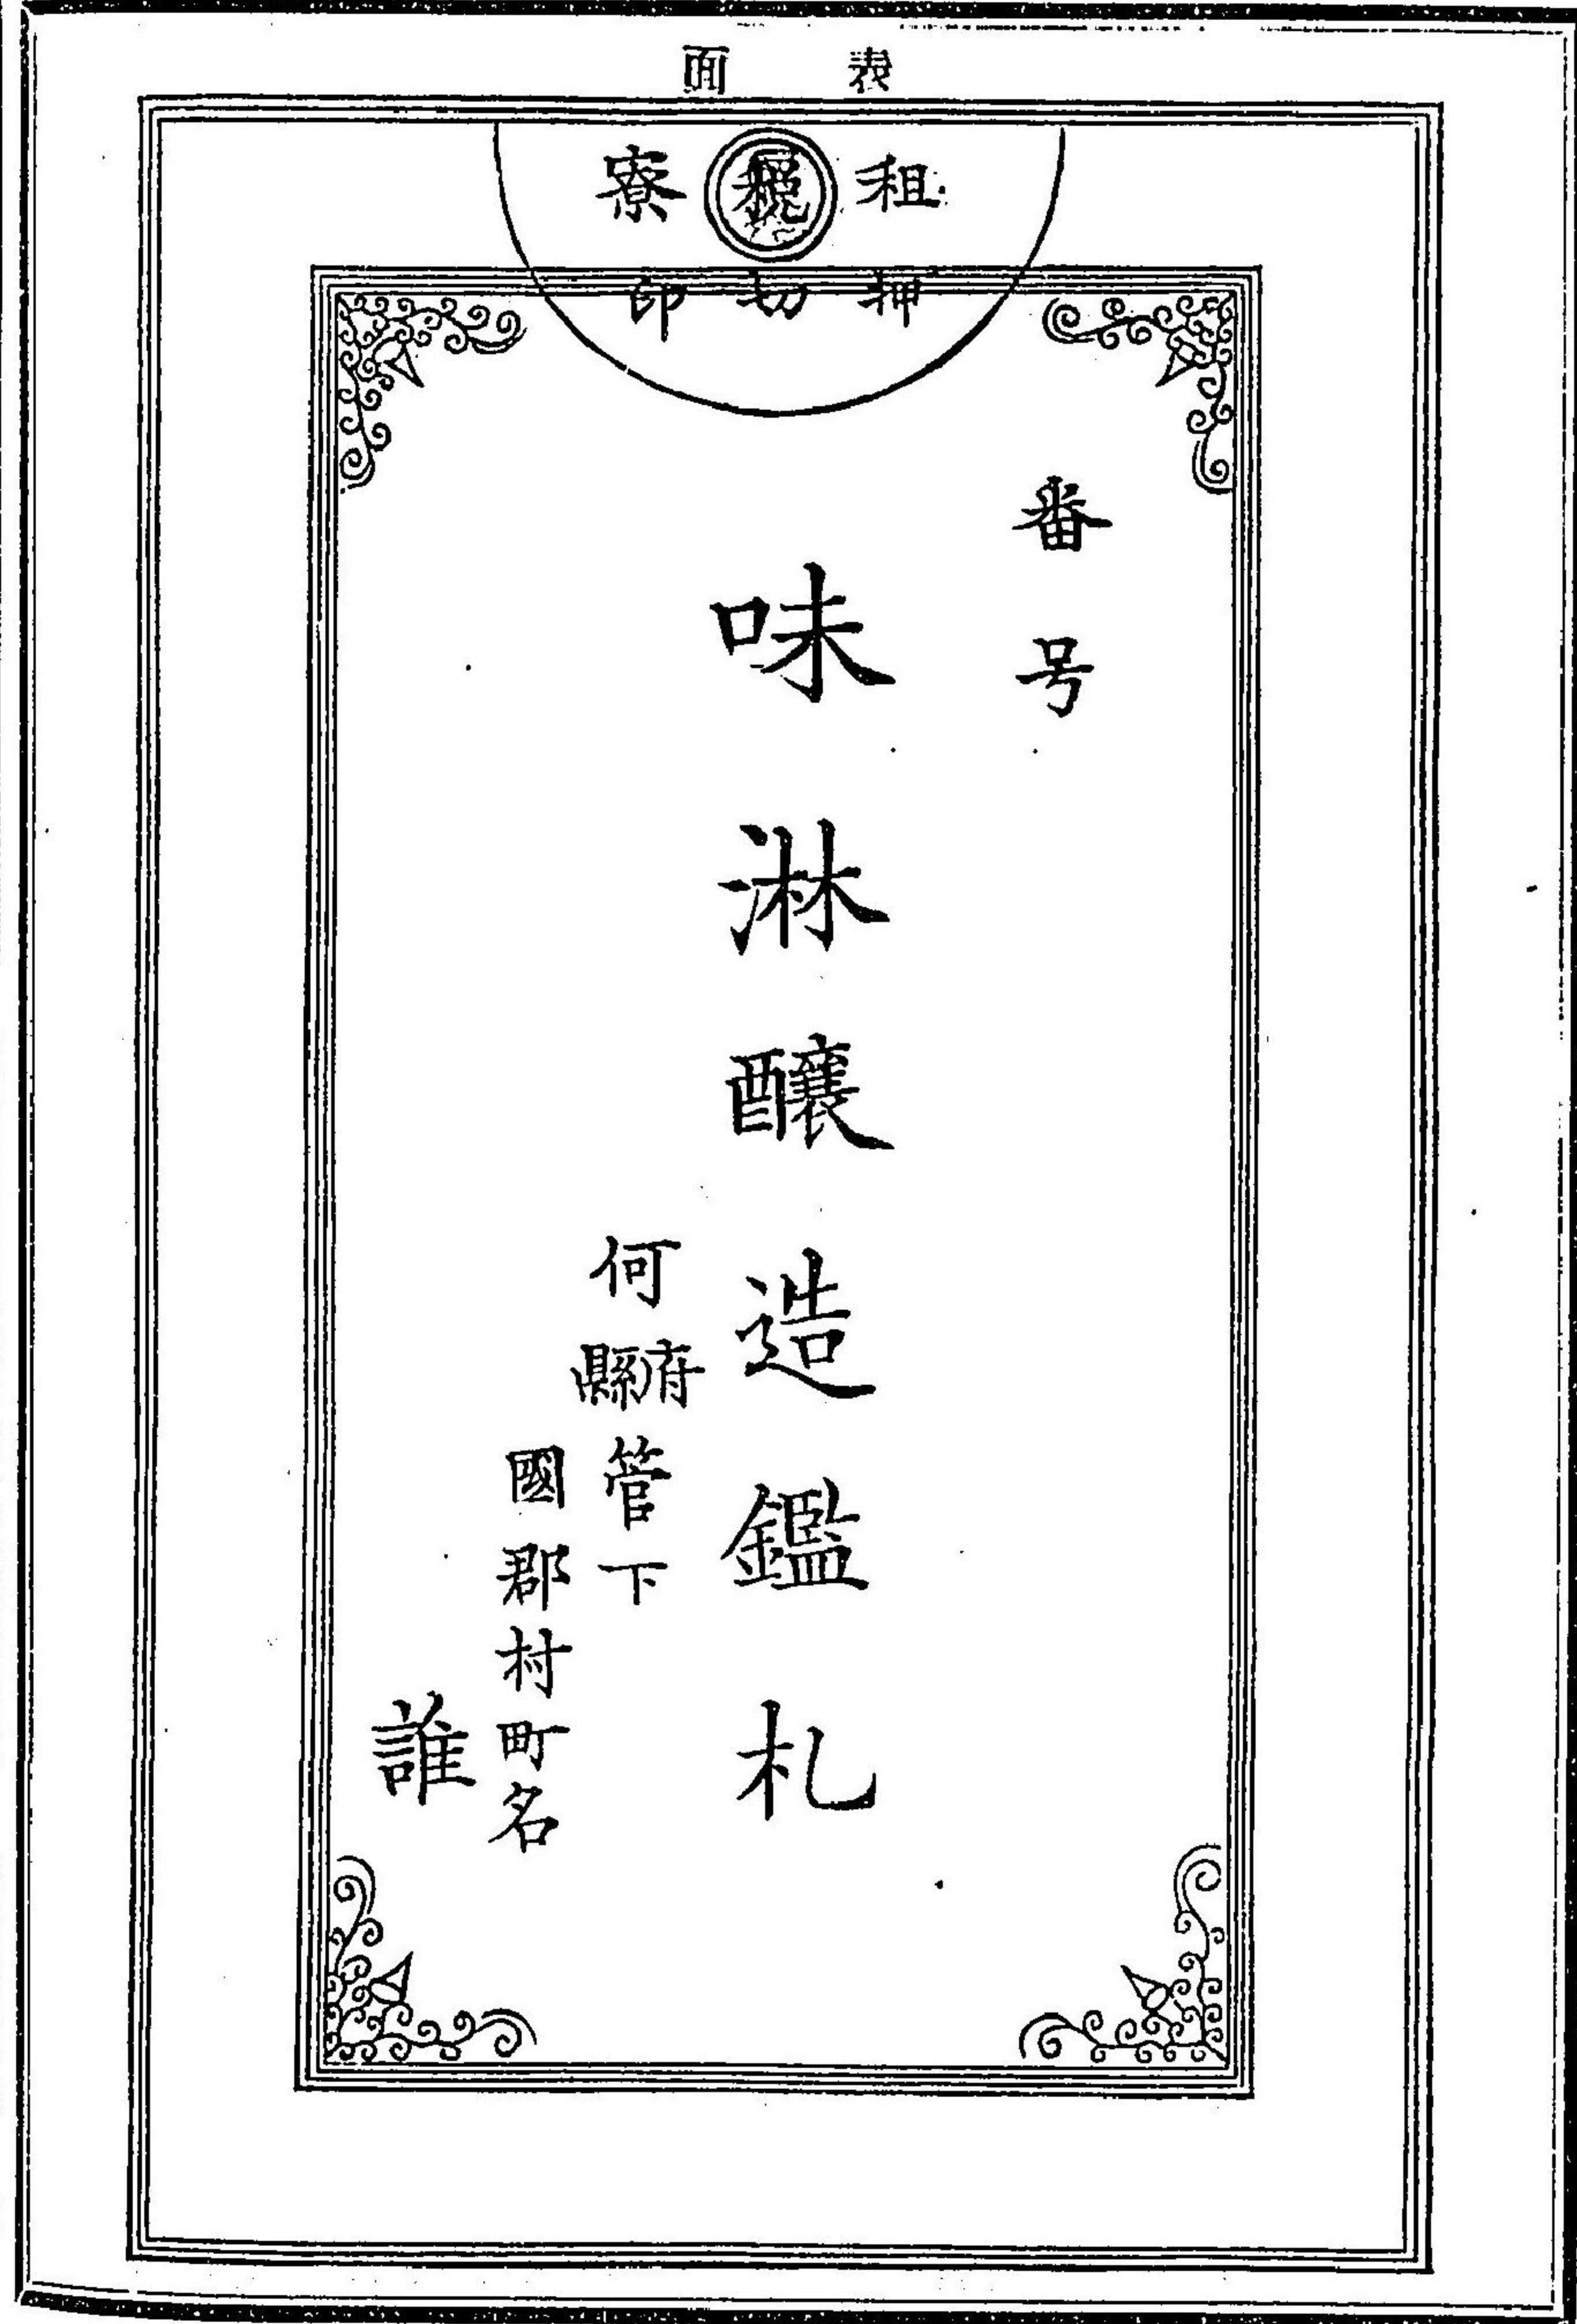 表面
租税寮
押切印
番号
味淋釀造鑑札
何府縣管下
國郡村町名
誰